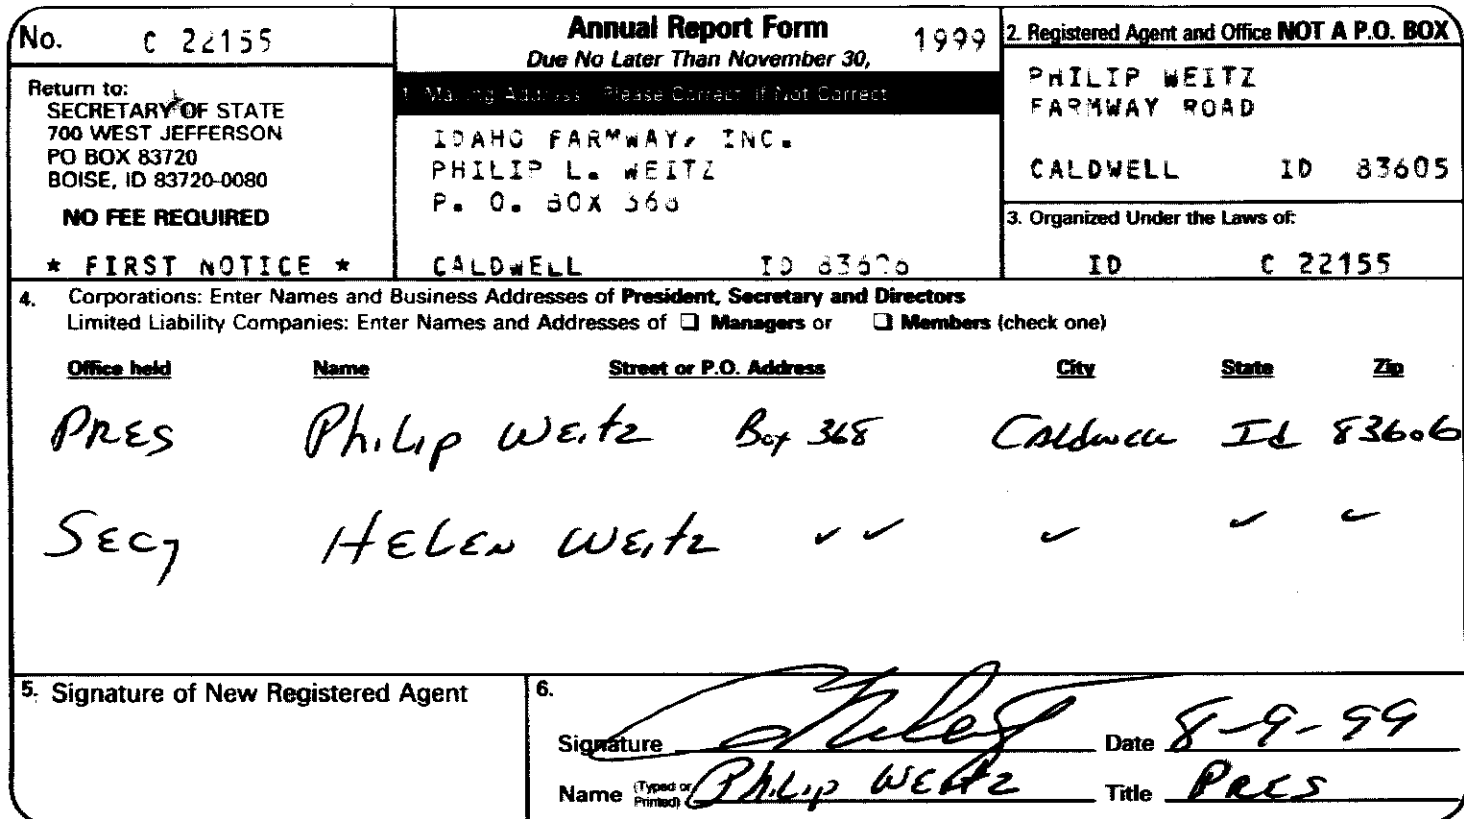 No. C 22155
Return to:
SECRETARY OF STATE
700 WEST JEFFERSON
PO BOX 83720
BOISE, ID 83720-0080
NO FEE REQUIRED
* FIRST NOTICE *
Annual Report Form 1999
Due No Later Than November 30,
1. Mailing Address: Please Correct If Not Correct
IDAHO FARMWAY, INC.
PHILIP L. WEITZ
P. O. BOX 368
CALDWELL ID 83606
2. Registered Agent and Office NOT A P.O. BOX
PHILIP WEITZ
FARMWAY ROAD
CALDWELL ID 83605
3. Organized Under the Laws of:
ID C 22155
4. Corporations: Enter Names and Business Addresses of President, Secretary and Directors
Limited Liability Companies: Enter Names and Addresses of ❑ Managers or ❑ Members (check one)
Office held Name Street or P.O. Address City State Zip
PRES Philip Weitz Box 368 Caldwell Id 83606
SECY HELEN WEITZ ✓ ✓ ✓ ✓ ✓
5. Signature of New Registered Agent
6.
Signature Date 8-9-99
Name (Typed or Printed) Philip Weitz Title PRES